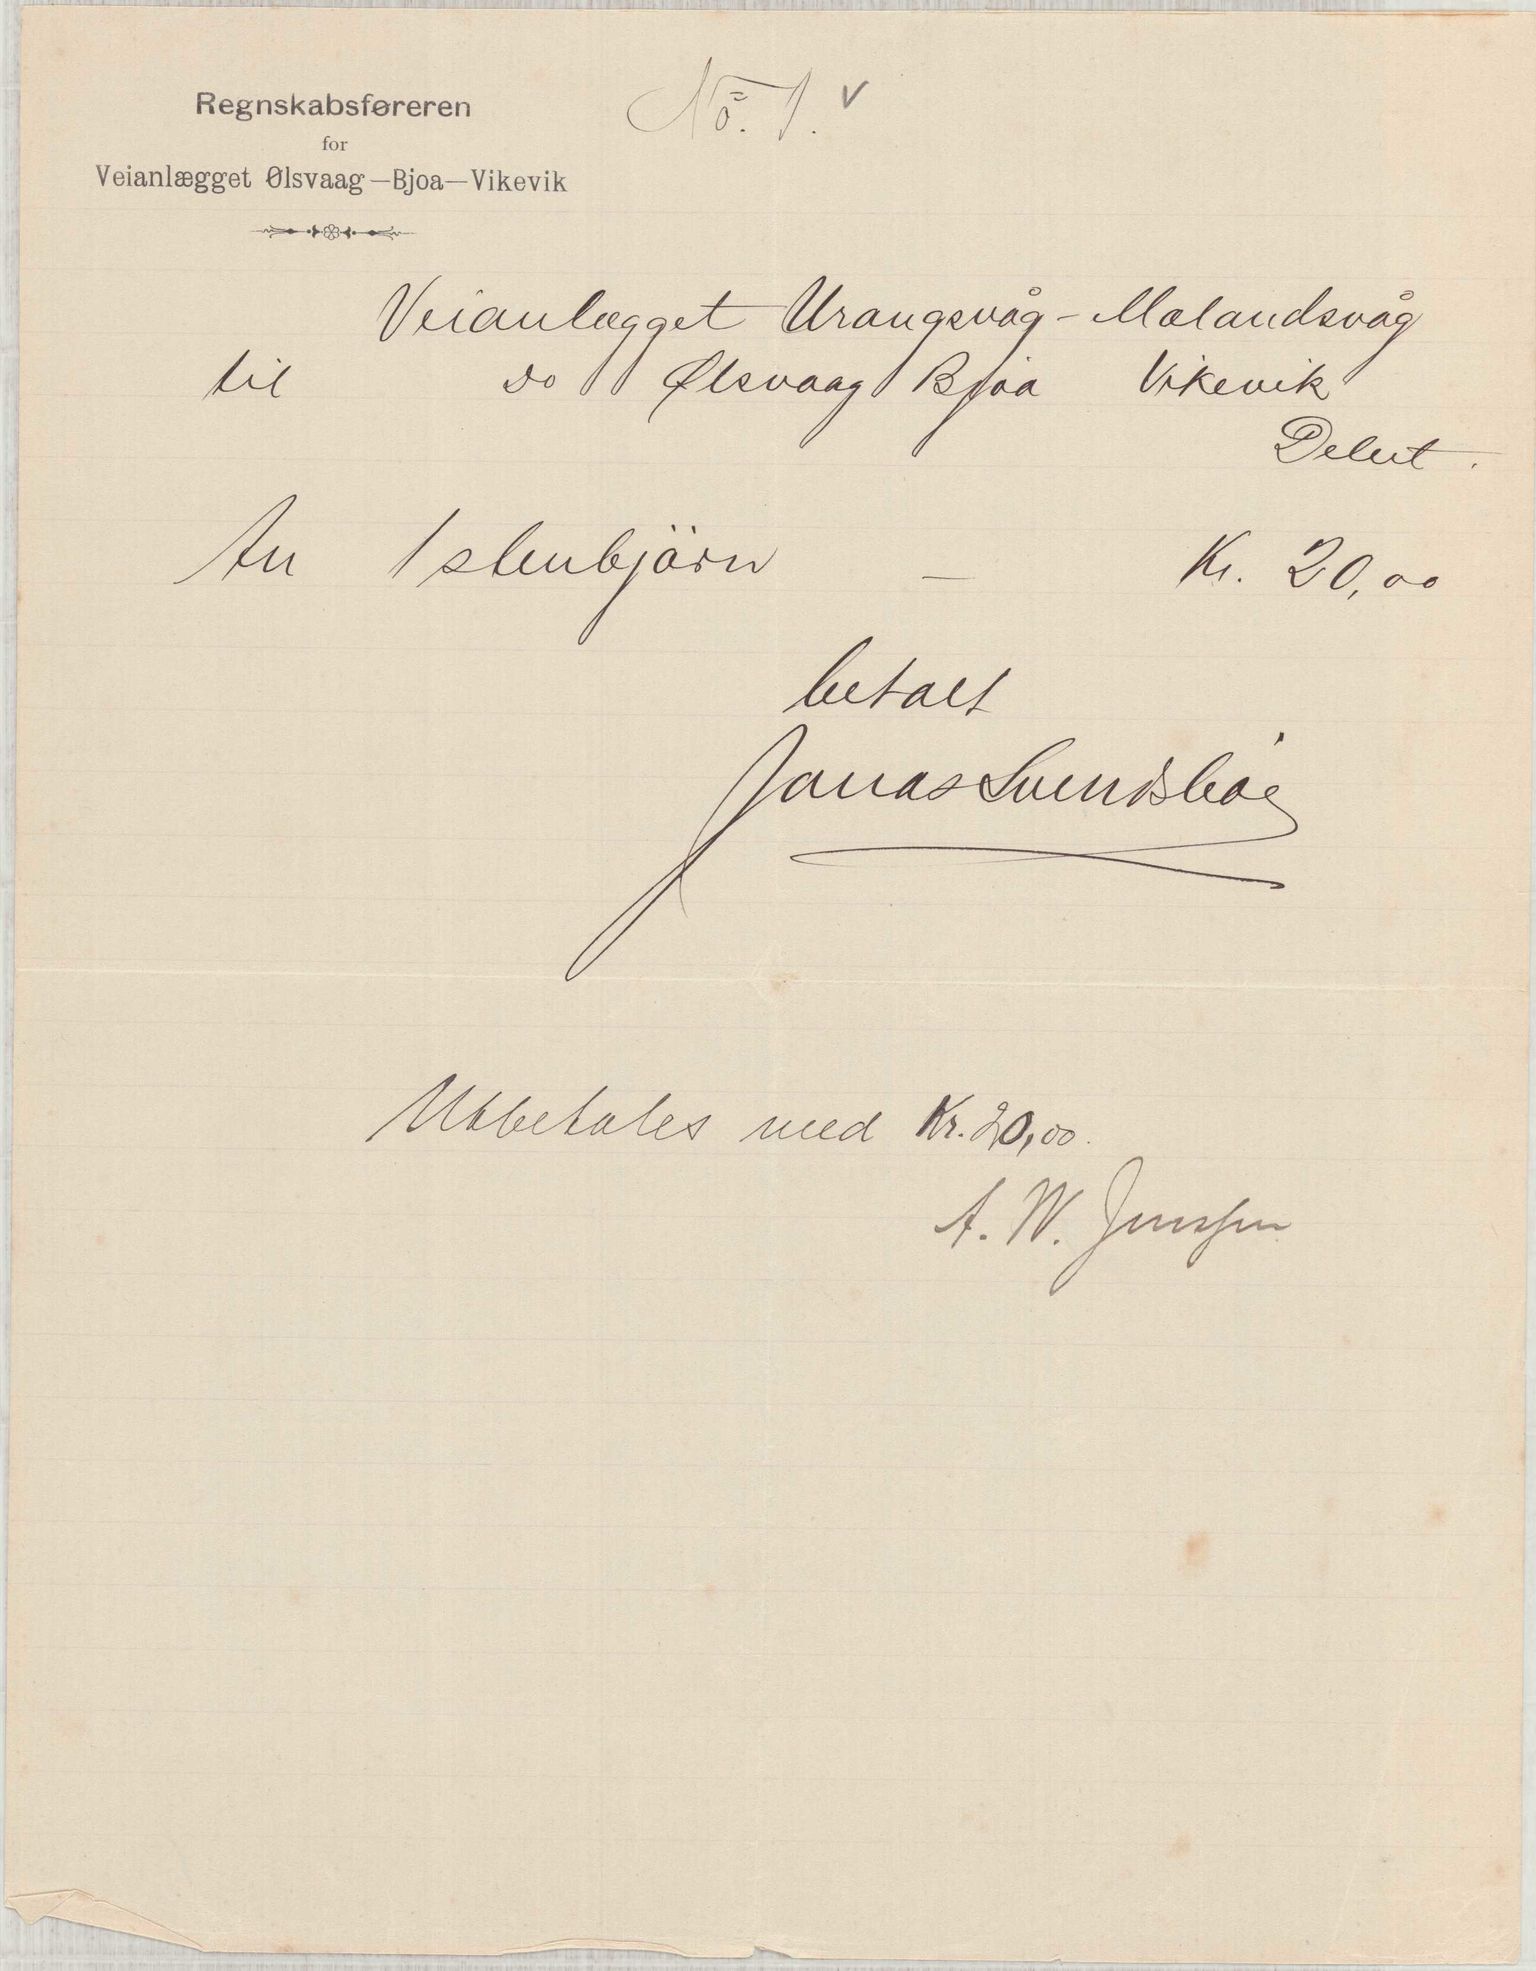 Regnskabsføreren
for
Veianlægget Ølsvaag—Bjoa—Vikevik
No. 1. v
Veianlægget Urangsvåg - Mælandsvåg
til do Ølsvaag Bjoa Vikevik
Debet.
An 1 stenbjörn — Kr. 20,00
betalt
Jonas Svendsbøe
Utbetales med Kr. 20,00.
A. W. Jenssen